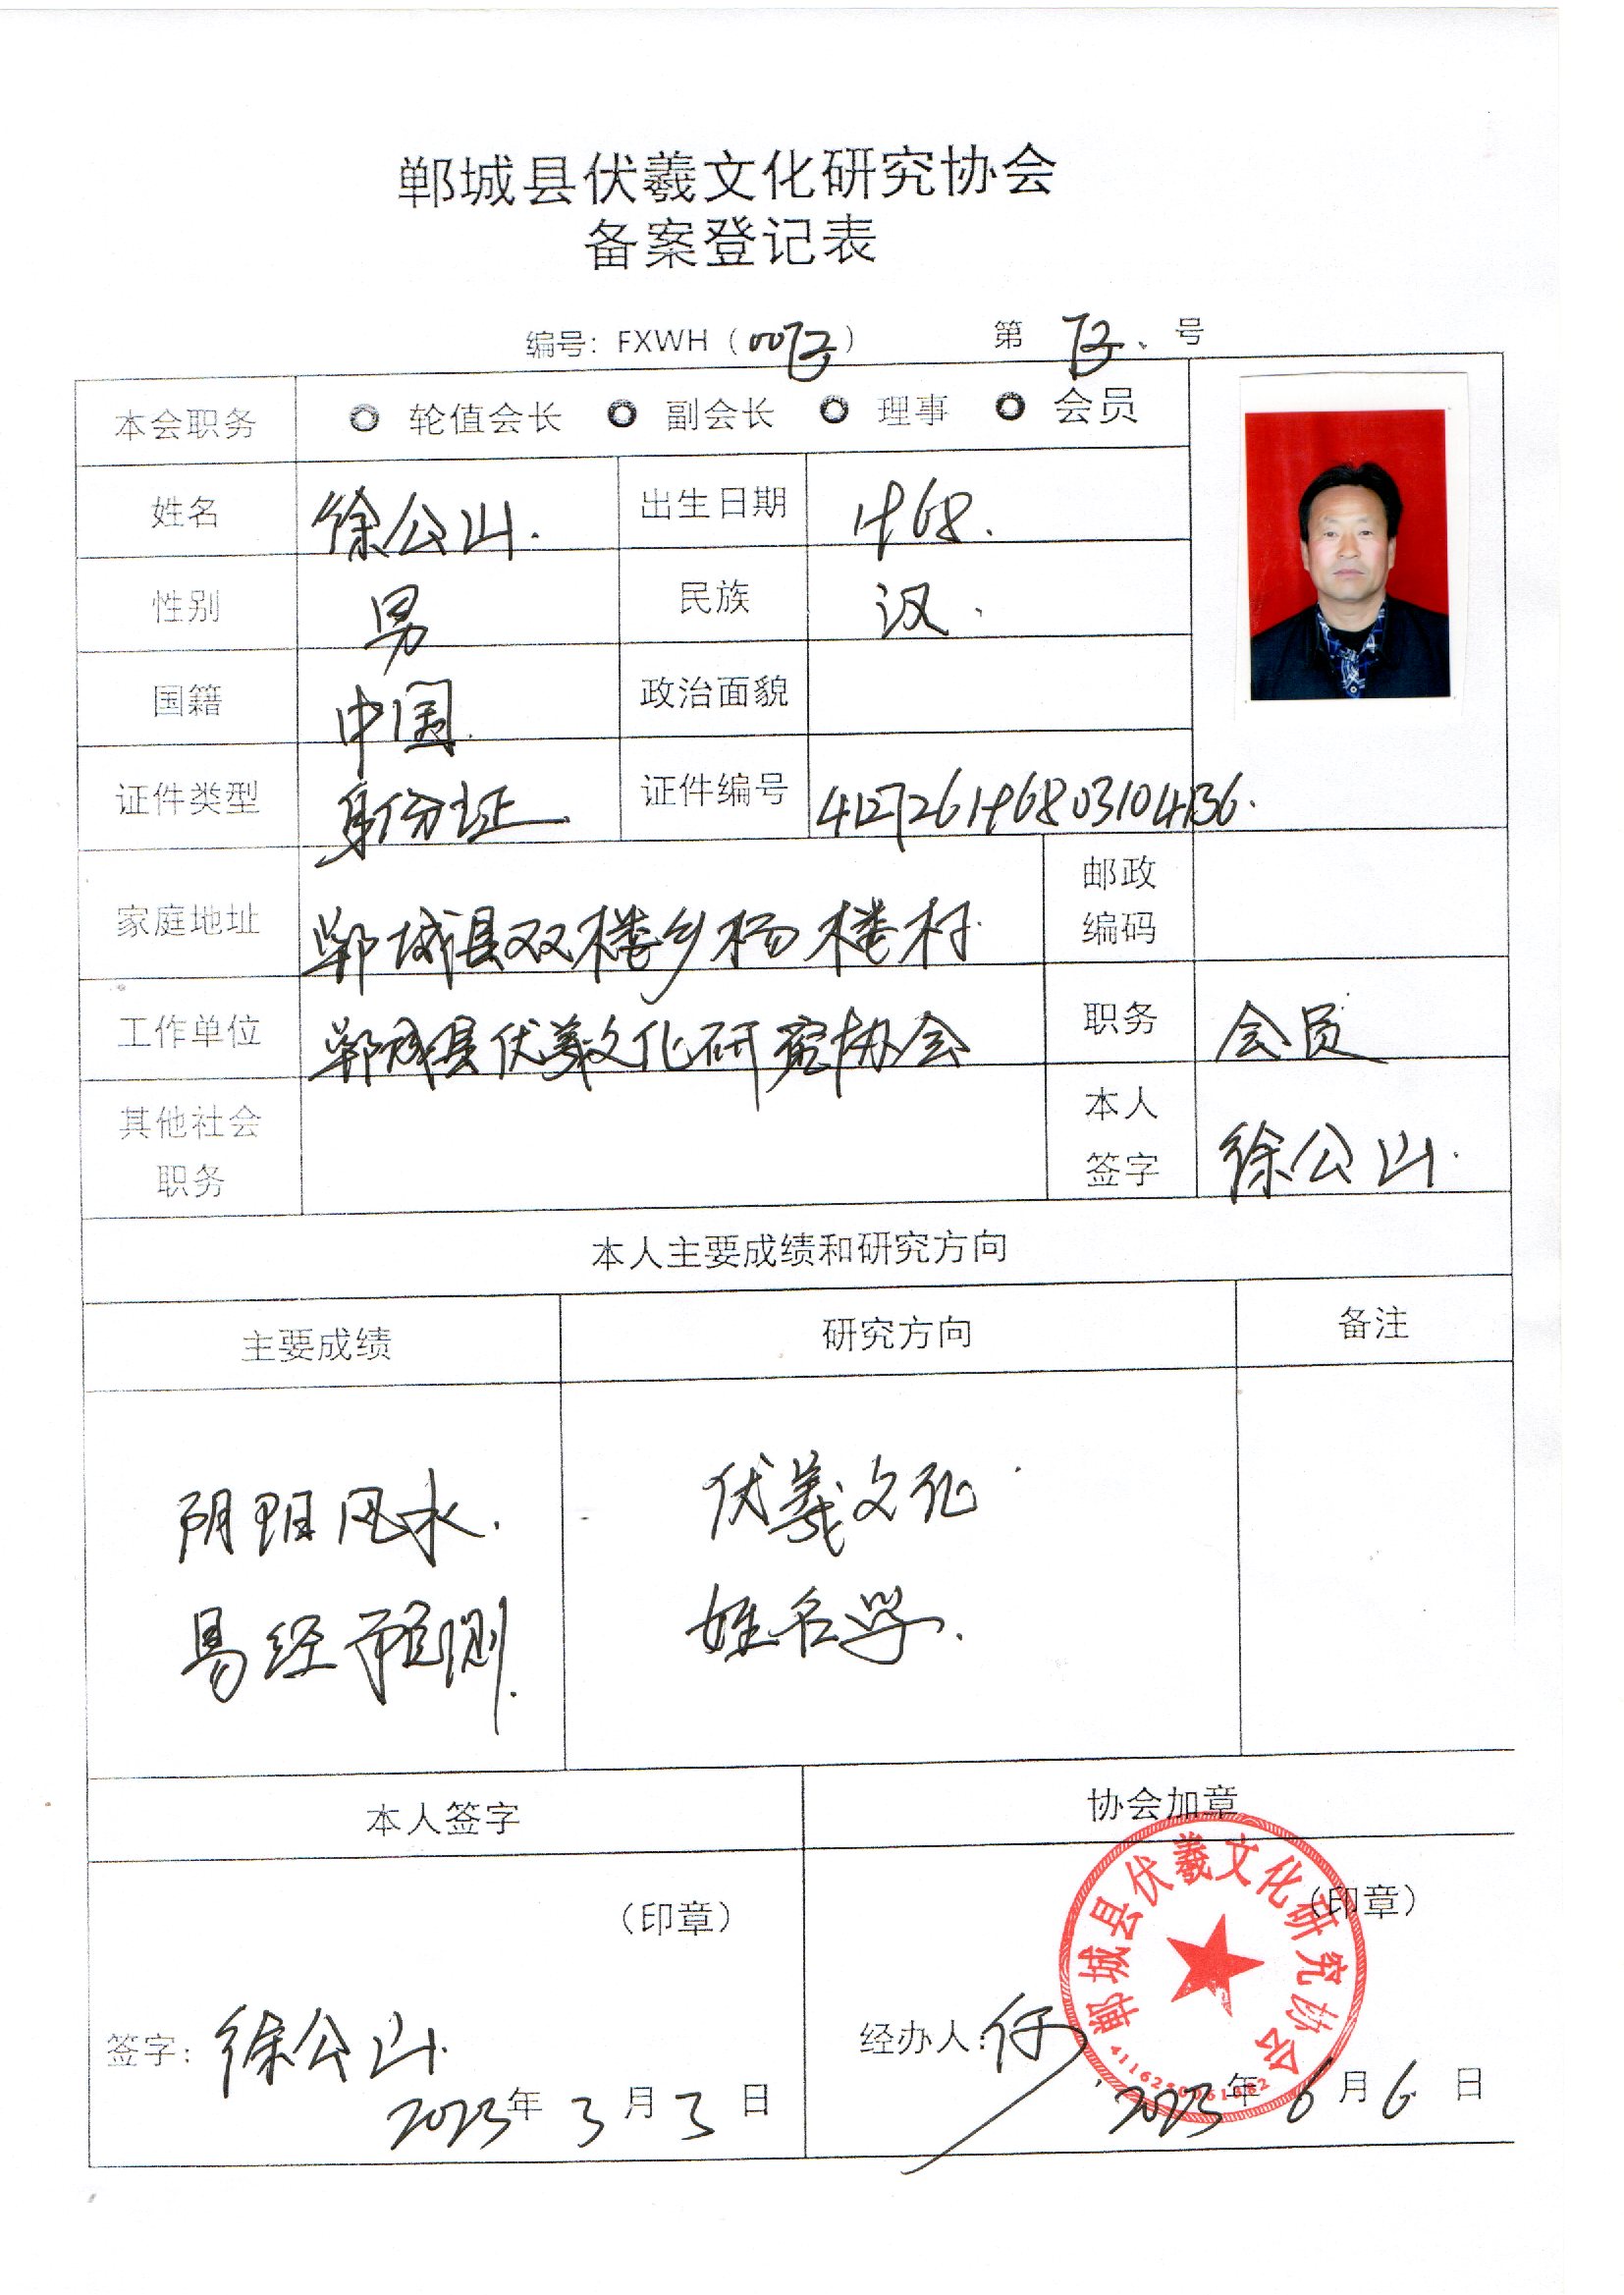 郸城县伏羲文化研究协会
备案登记表
编号：FXWH（00 ） 第 号
本会职务 轮值会长 副会长 理事 会员
姓名 徐公山. 出生日期 1968.
性别 男 民族 汉.
国籍 中国. 政治面貌
证件类型 身份证. 证件编号 412726196803104136.
家庭地址 郸城县双楼乡杨楼村. 邮政编码
工作单位 郸城县伏羲文化研究协会 职务 会员
其他社会职务 本人签字 徐公山.
本人主要成绩和研究方向
主要成绩 研究方向 备注
阴阳风水. 伏羲文化.
易经预测. 姓名学.
本人签字 协会加章
（印章） （印章）
郸城县伏羲文化研究协会
签字：徐公山. 经办人：
2023年3月3日 2023年6月6日